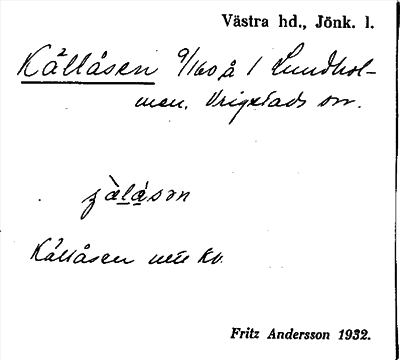 Västra hd., Jönk. l.
Källåsen 9/160 å 1 Lundhol-
men, Vrigstads sn.
Källåsen utt kv.
Fritz Andersson 1932.